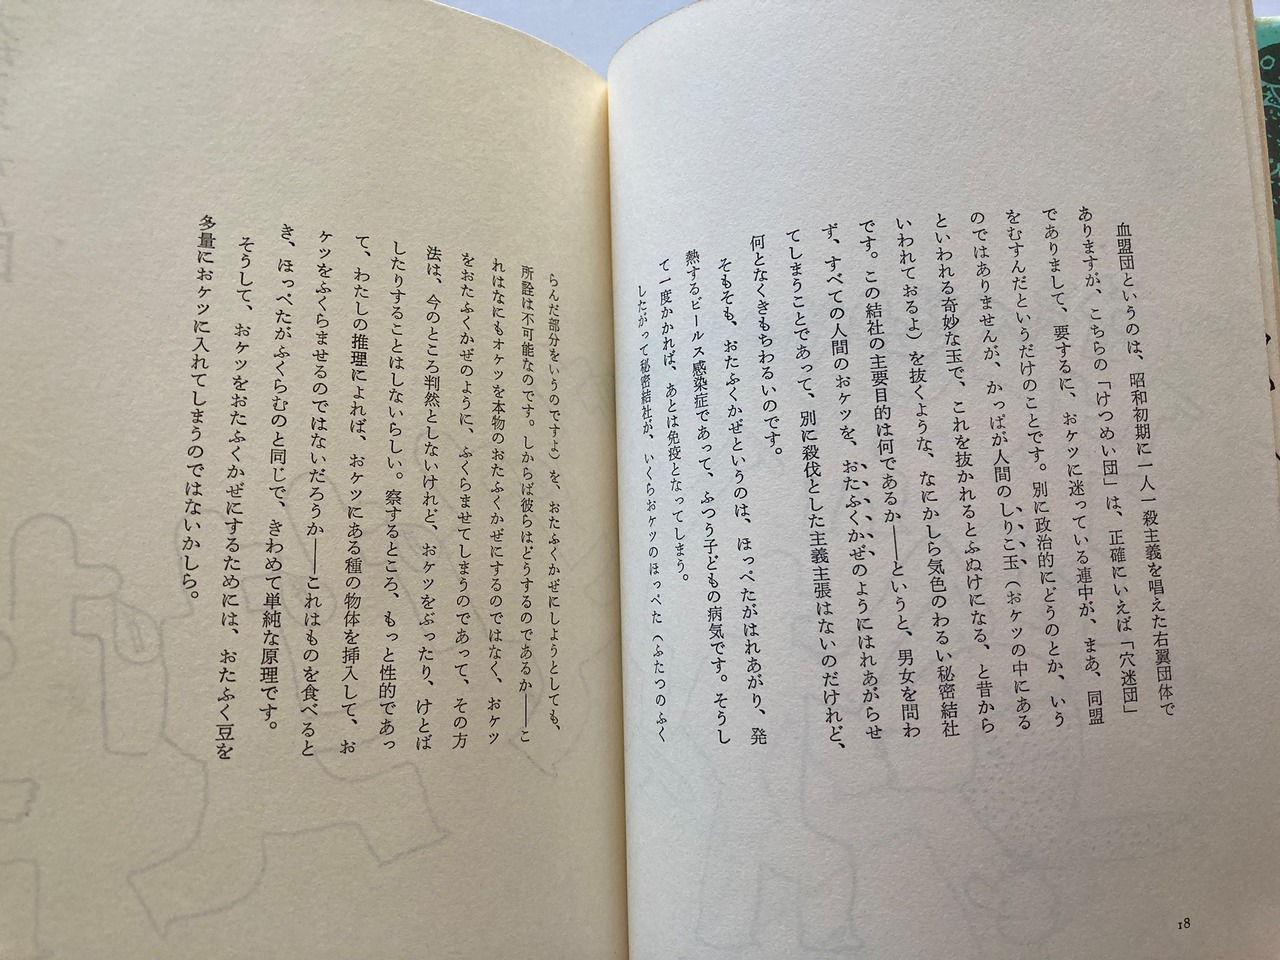 血盟団というのは、昭和初期に一人一殺主義を唱えた右翼団体で
ありますが、こちらの「けつめい団」は、正確にいえば「穴迷団」
でありまして、要するに、おケツに迷っている連中が、まあ、同盟
をむすんだというだけのことです。別に政治的にどうのとか、いう
のではありませんが、かっぱが人間のしりこ玉（おケツの中にある
といわれる奇妙な玉で、これを抜かれるとふぬけになる、と昔から
いわれておるよ）を抜くような、なにかしら気色のわるい秘密結社
です。この結社の主要目的は何であるか――というと、男女を問わ
ず、すべての人間のおケツを、おたふくかぜのようにはれあがらせ
てしまうことであって、別に殺伐とした主義主張はないのだけれど、
何となくきもちわるいのです。
そもそも、おたふくかぜというのは、ほっぺたがはれあがり、発
熱するビールス感染症であって、ふつう子どもの病気です。そうし
て一度かかれば、あとは免疫となってしまう。
したがって秘密結社が、いくらおケツのほっぺた（ふたつのふく
らんだ部分をいうのですよ）を、おたふくかぜにしようとしても、
所詮は不可能なのです。しからば彼らはどうするのであるか――こ
れはなにもオケツを本物のおたふくかぜにするのではなく、おケツ
をおたふくかぜのように、ふくらませてしまうのであって、その方
法は、今のところ判然としないけれど、おケツをぶったり、けとば
したりすることはしないらしい。察するところ、もっと性的であっ
て、わたしの推理によれば、おケツにある種の物体を挿入して、お
ケツをふくらませるのではないだろうか――これはものを食べると
き、ほっぺたがふくらむのと同じで、きわめて単純な原理です。
そうして、おケツをおたふくかぜにするためには、おたふく豆を
多量におケツに入れてしまうのではないかしら。
18